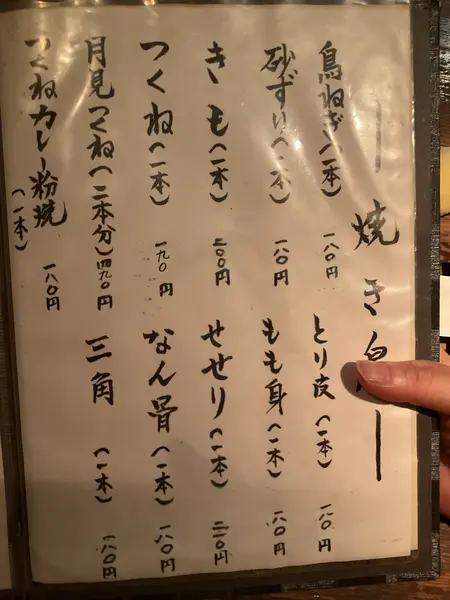 焼き
鳥ねぎ(一本) 一八〇円
とり皮(一本) 一八〇円
砂ずり(一本) 一八〇円
もも身(一本) 一八〇円
きも(一本) 二〇〇円
せせり(一本) 二二〇円
つくね(一本) 一九〇円
なん骨(一本) 一八〇円
月見つくね(二本分) 四九〇円
三角(一本) 一八〇円
つくねカレー粉焼(一本) 一八〇円